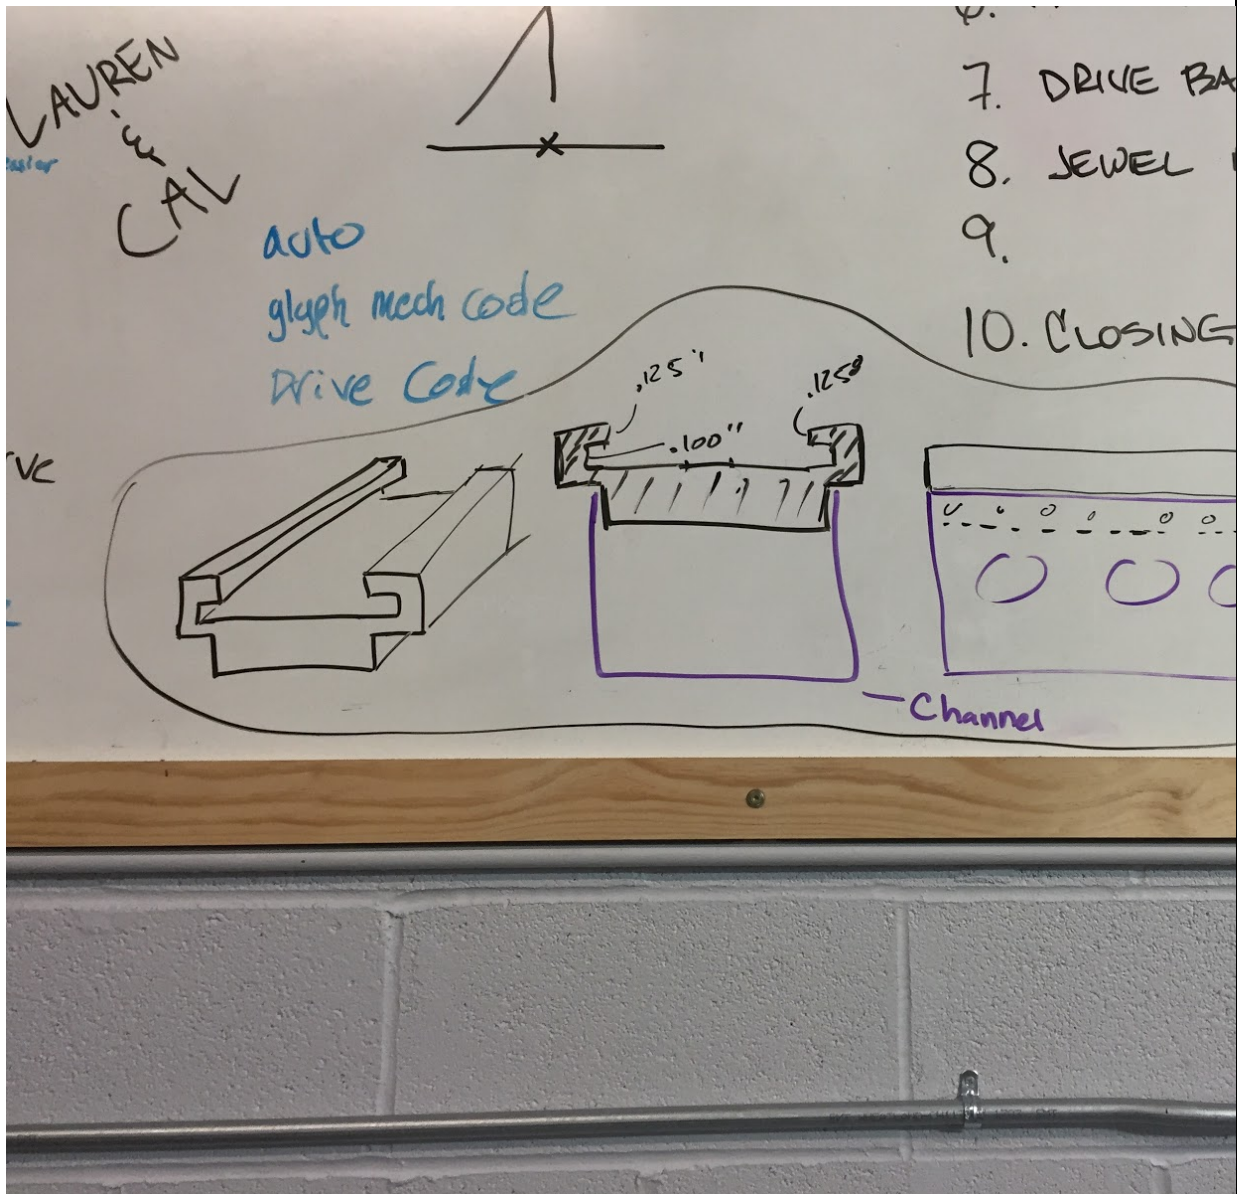 LAUREN
&
CAL
auto
glyph mech code
Drive Code
7. DRIVE BA
8. JEWEL
9.
10. CLOSING
.125"
.125"
.100"
Channel